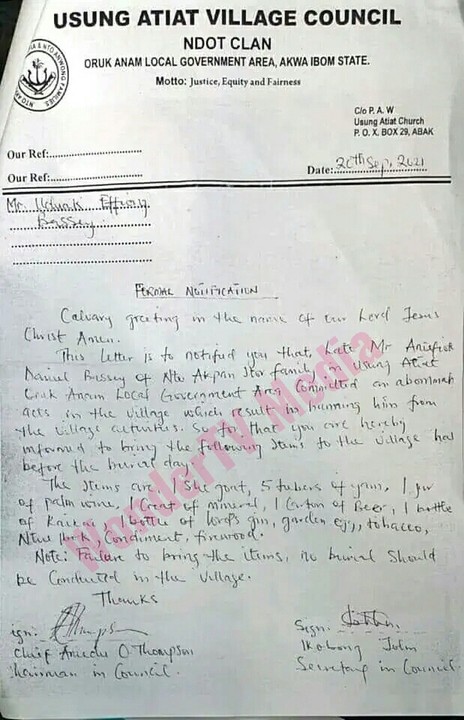 USUNG ATIAT VILLAGE COUNCIL
NDOT CLAN
ORUK ANAM LOCAL GOVERNMENT AREA, AKWA IBOM STATE.
Motto: Justice, Equity and Fairness
C/o P. A. W
Usung Atiat Church
P. O. X. BOX 29, ABAK
Our Ref:
Our Ref:
Date: 20th Sep, 2021
Mr. Udunk Effiong
Bassey
FORMAL NOTIFICATION
Calvary greeting in the name of our Lord Jesus
Christ Amen.
This letter is to notified you that, Late Mr Aniefiok
Daniel Bassey of Nto Akpan Itor family in Usung Atiat
Oruk Anam Local Government Area Committed an abominab
acts in the village which result in banning him from
the village activities. So for that you are hereby
informed to bring the following Items to the village hal
before the burial day.
The Items are 1 She goat, 5 tubers of yam, 1 jar
of palm wine, 1 Creat of mineral, 1 Carton of Beer, 1 bottle
of Kaikai, 1 bottle of lord's gin, garden egg, tobacco,
Condiment, firewood.
Note: Failure to bring the items, no burial Should
be Conducted in the village.
Thanks
Sign:
Chief Aniedu O. Thompson
Chairman in Council
Sign.
Ikobong John
Secretary in Council
WonderTV Media